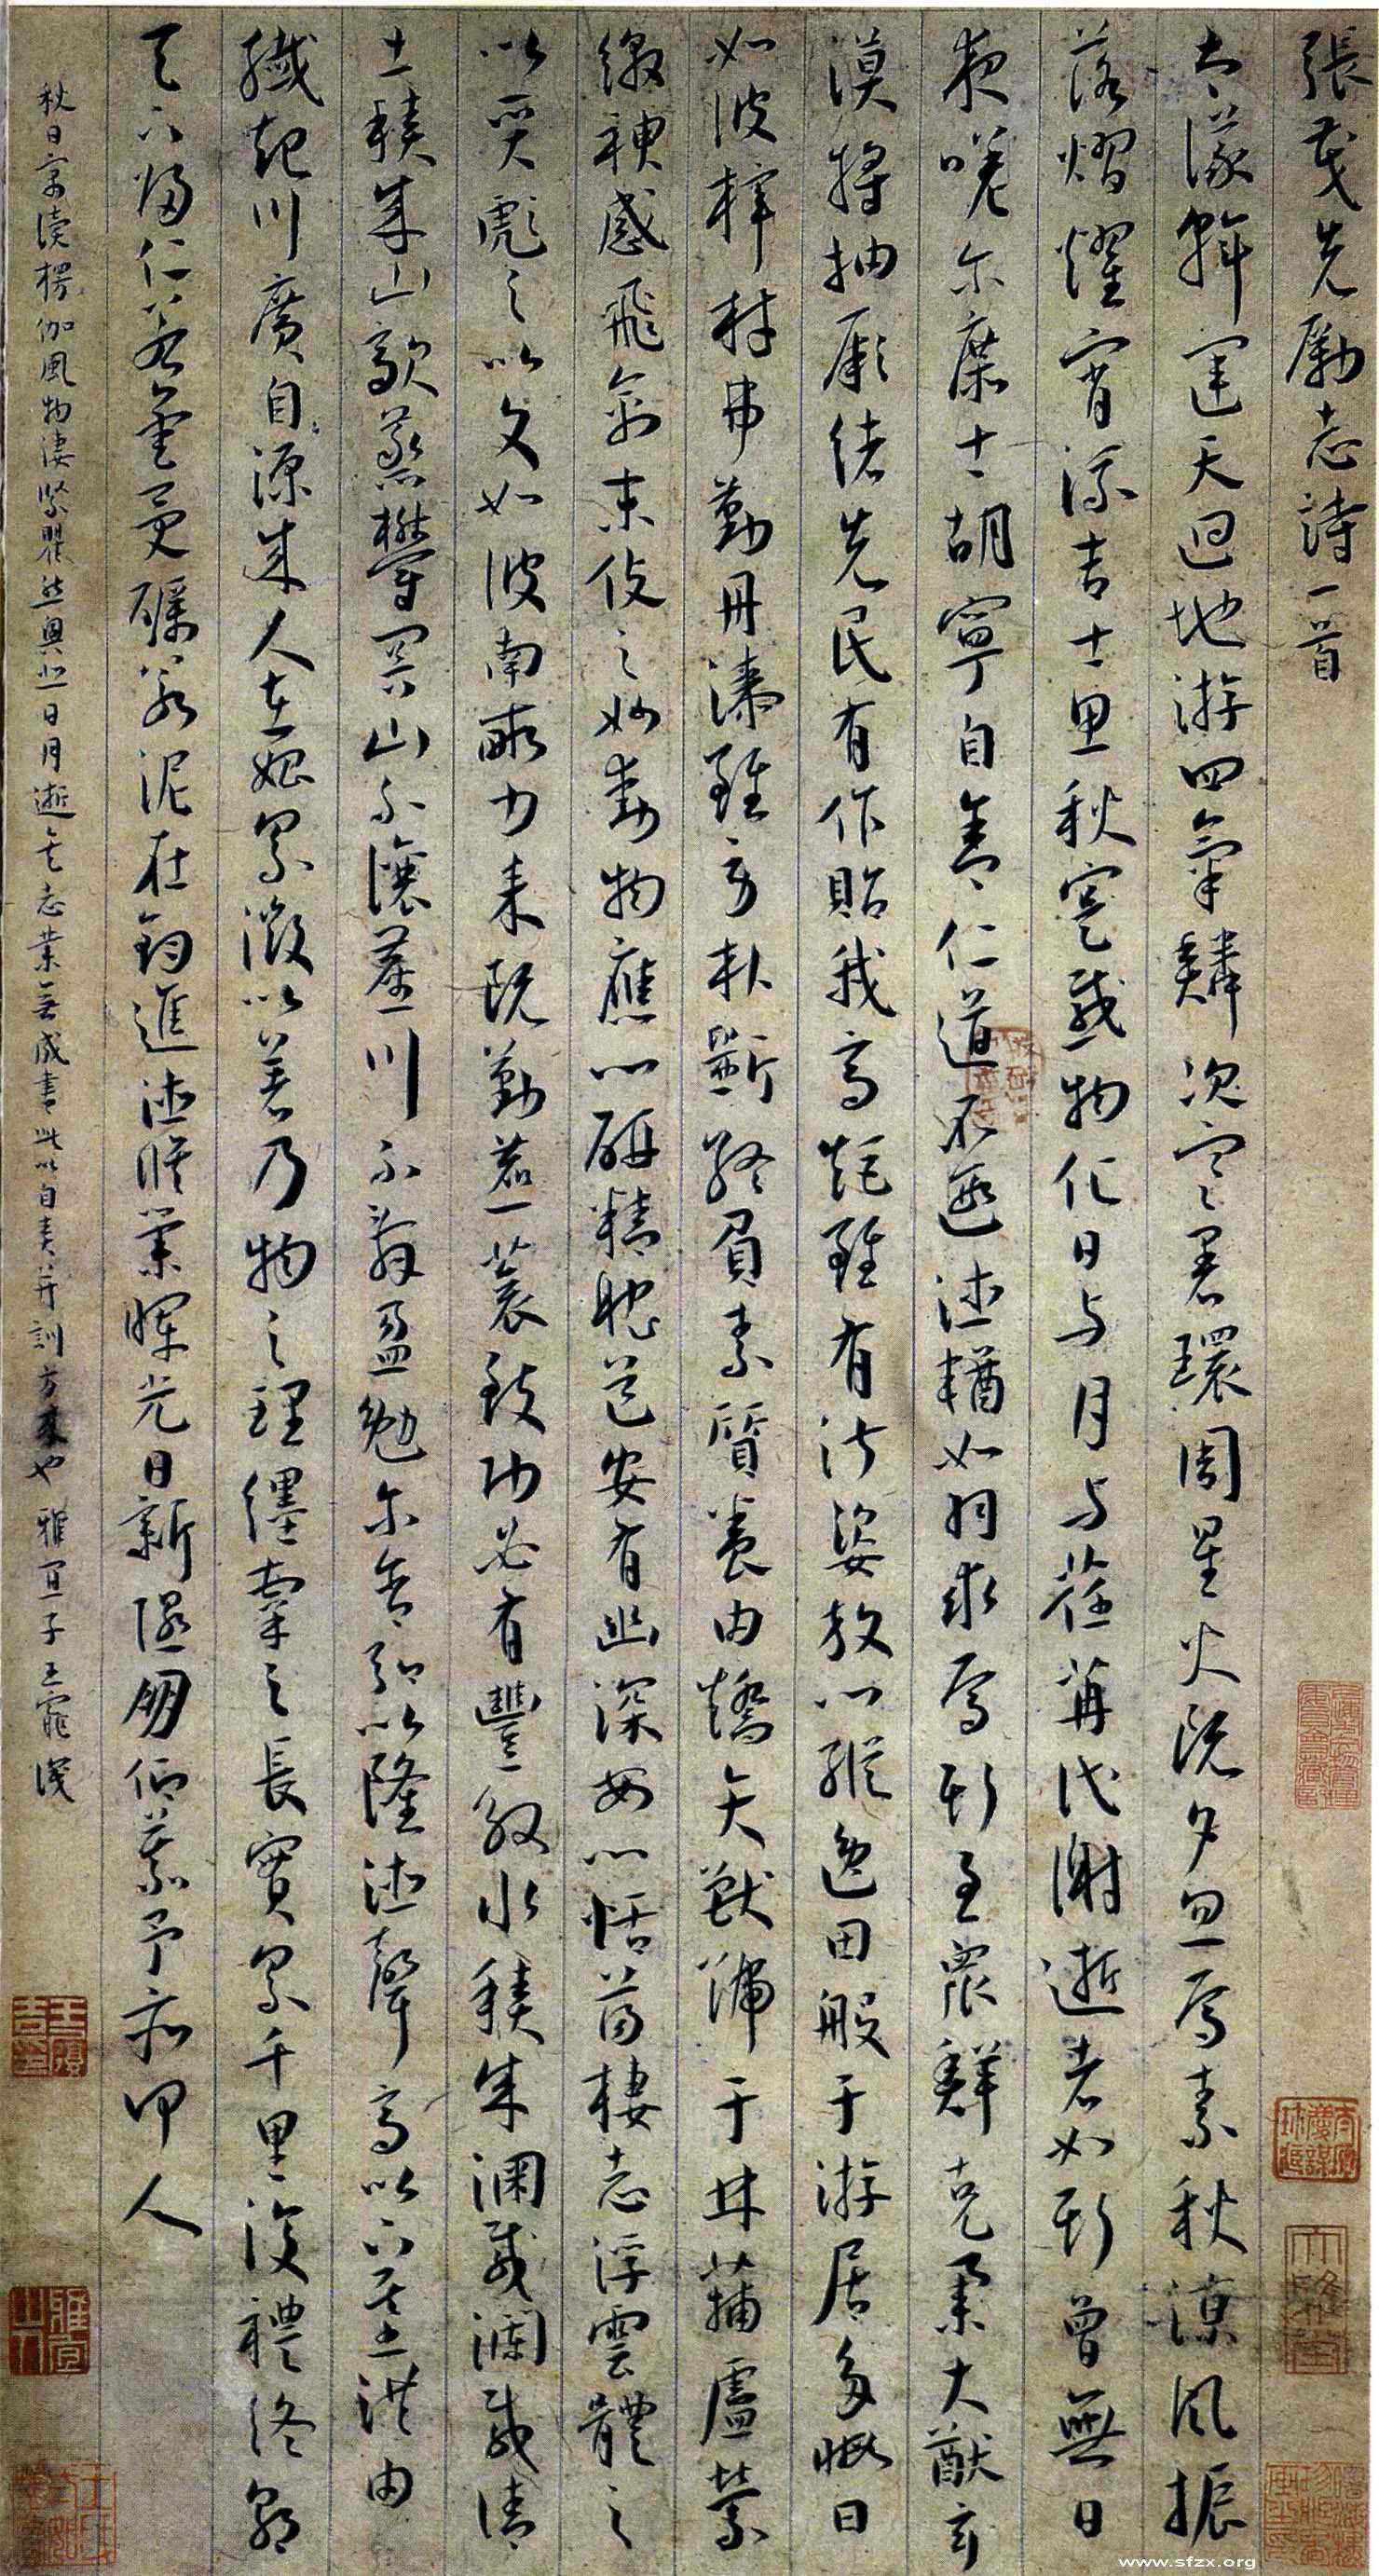 張茂先勵志詩一首
太儀斡運天迴地游四氣鱗次寒暑環周星火既夕忽焉素秋涼風振
落熠燿宵流吉士思秋寔感物化日与月与荏苒代謝逝者如斯曾無日
夜嗟尔庶士胡寧自舍仁道不遐德輶如羽求焉斯至眾鮮克舉大猷玄
漠將抽厥緒先民有作貽我高矩雖有淑姿放心縱逸田般于游居多暇日
如彼梓材弗勤丹漆雖勞朴斲終負素質養由矯矢獸號于林蒲盧縈
繳神感飛禽末伎之妙動物應心研精耽道安有幽深安心恬蕩棲志浮雲體之
以質彪之以文如彼南畝力耒既勤藨蓘致功必有豐殷水積成淵載瀾載清
土積成山歊蒸鬱冥山不讓塵川不辭盈勉尔含弘以隆德聲高以下基洪由
纖起川廣自源成人在始累微以著乃物之理纆牽之長實累千里復禮終朝
天下歸仁若金受礪若泥在鈞進德脩業暉光日新隰朋仰慕予亦何人
秋日寓讀楞伽風物淒緊瞿然興悲日月逝矣志業無成書此以自責并訓方來也 雅宜子王寵識
www.sfzx.org